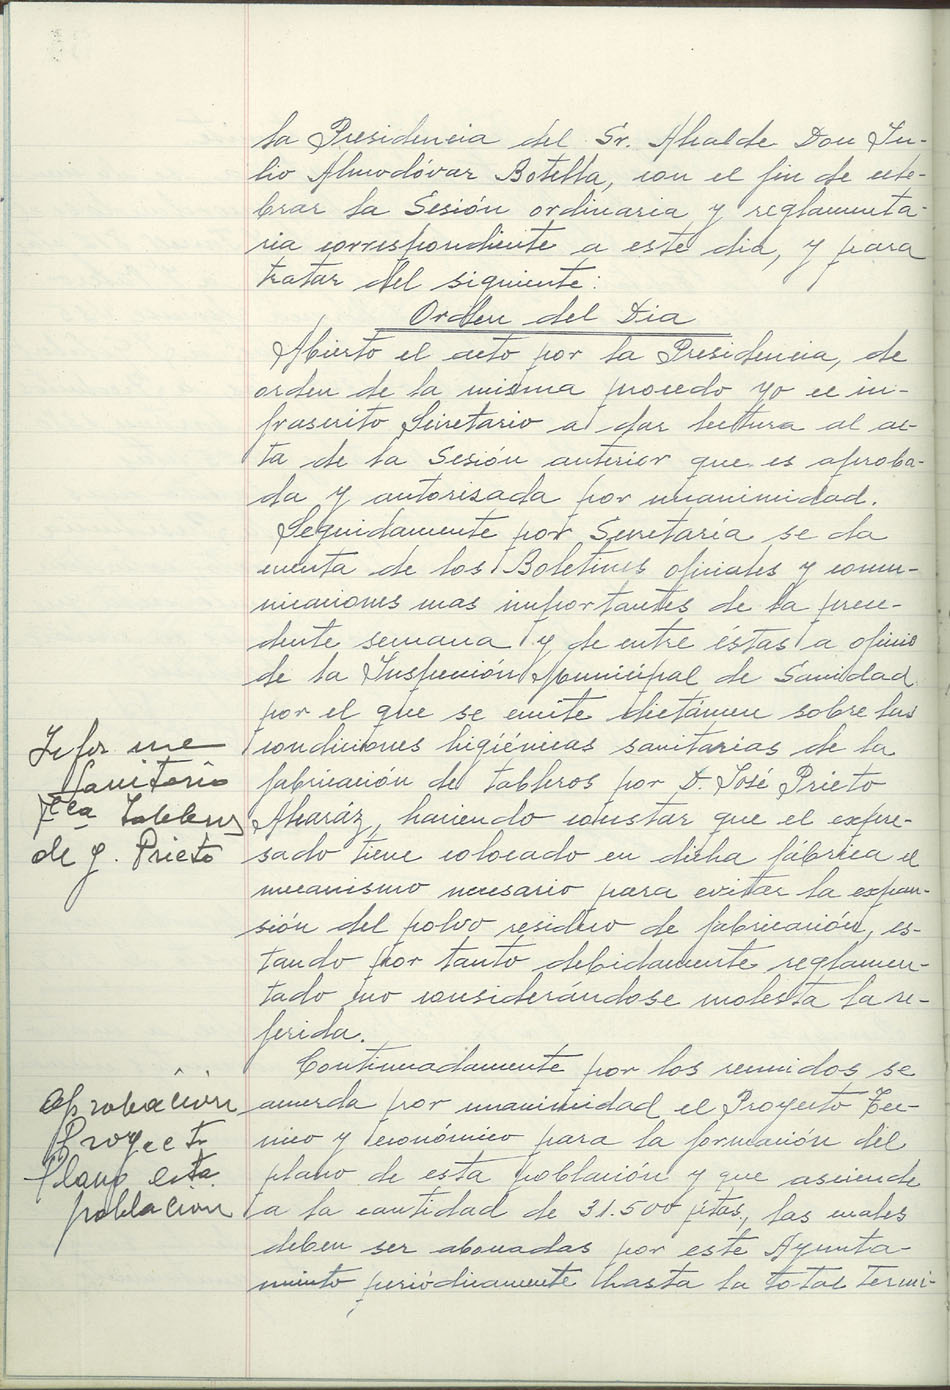 la Presidencia del Sr. Alcalde Don Ju-
lio Almodóvar Botella, con el fin de cele-
brar la Sesión ordinaria y reglamenta-
ria correspondiente a este dia, y para
tratar del siguiente:
Orden del Dia
Abierto el acto por la Presidencia, de
orden de la misma procedo yo el in-
frascrito Secretario a dar lectura al ac-
ta de la Sesión anterior que es aproba-
da y autorisada por unanimidad.
Seguidamente por Secretaría se da
cuenta de los Boletines oficiales y comu-
nicaciones mas importantes de la prece-
dente semana y de entre éstas a oficio
de la Inspección Municipal de Sanidad
por el que se emite dictámen sobre las
Informe
condiciones higiénicas sanitarias de la
Sanitario
fabricación de tableros por D. José Prieto
Fca Tableros
Alcaráz, haciendo constar que el expre-
de J. Prieto
sado tiene colocado en dicha fábrica el
mecanismo necesario para evitar la expan-
sión del polvo residuo de fabricación, es-
tando por tanto debidamente reglamen-
tado no considerándose molesta la re-
ferida.
Continuadamente por los reunidos se
Aprobación
acuerda por unanimidad el Proyecto Téc-
Proyecto
nico y económico para la formación del
Plano esta
plano de esta población y que asciende
población
a la cantidad de 31.500 ptas, las cuales
deben ser abonadas por este Ayunta-
miento periódicamente hasta la total termi-